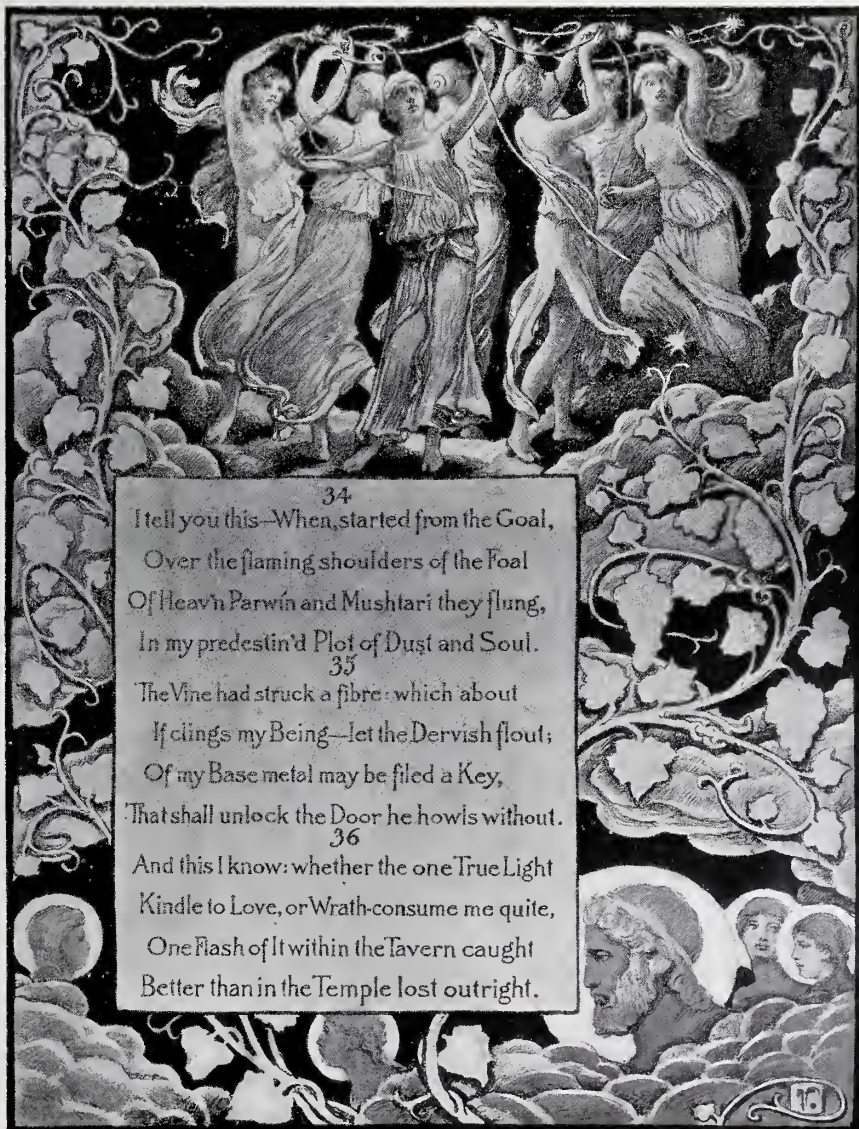 34
I tell you this—When, started from the Goal,
Over the flaming shoulders of the Foal
Of Heav'n Parwin and Mushtari they flung,
In my predestin'd Plot of Dust and Soul.
35
The Vine had struck a fibre: which about
If clings my Being—let the Dervish flout;
Of my Base metal may be filed a Key,
That shall unlock the Door he howls without.
36
And this I know: whether the one True Light
Kindle to Love, or Wrath-consume me quite,
One Flash of It within the Tavern caught
Better than in the Temple lost outright.